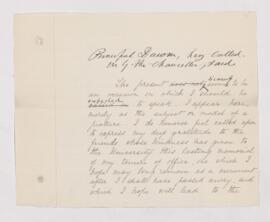 Principal Dawson, being called
on by the Chancellor, said
The present does not seem to be
an occasion on which I should be
expected to speak. I appear here
merely as the subject or model of a
picture. I do however feel called upon
to express my deep gratitude to the
friends whose kindness has given to
the University this lasting memorial
of my tenure of office, one which I
hope may long remain as a souvenir
after I shall have passed away, and
which I hope will lead to the